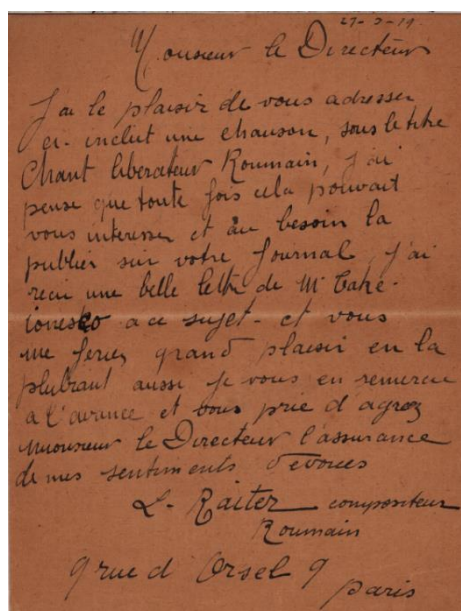 27-3-19.
Monsieur le Directeur
J'ai le plaisir de vous adresser
ci-inclut une chanson, sous le titre
Chant liberateur Roumain, j'ai
pense que toute fois cela pouvait
vous interesser et au besoin la
publier sur votre Journal, j'ai
recu une belle lettre de Mr Take-
ionesco a ce sujet - et vous
me feriez grand plaisir en la
plubrant aussi je vous en remercie
a l'avance et vous prie d'agrez
Monsieur le Directeur l'assurance
de mes sentiments devouees
L. Raiter compositeur
Roumain
9 rue d'Orsel 9
paris